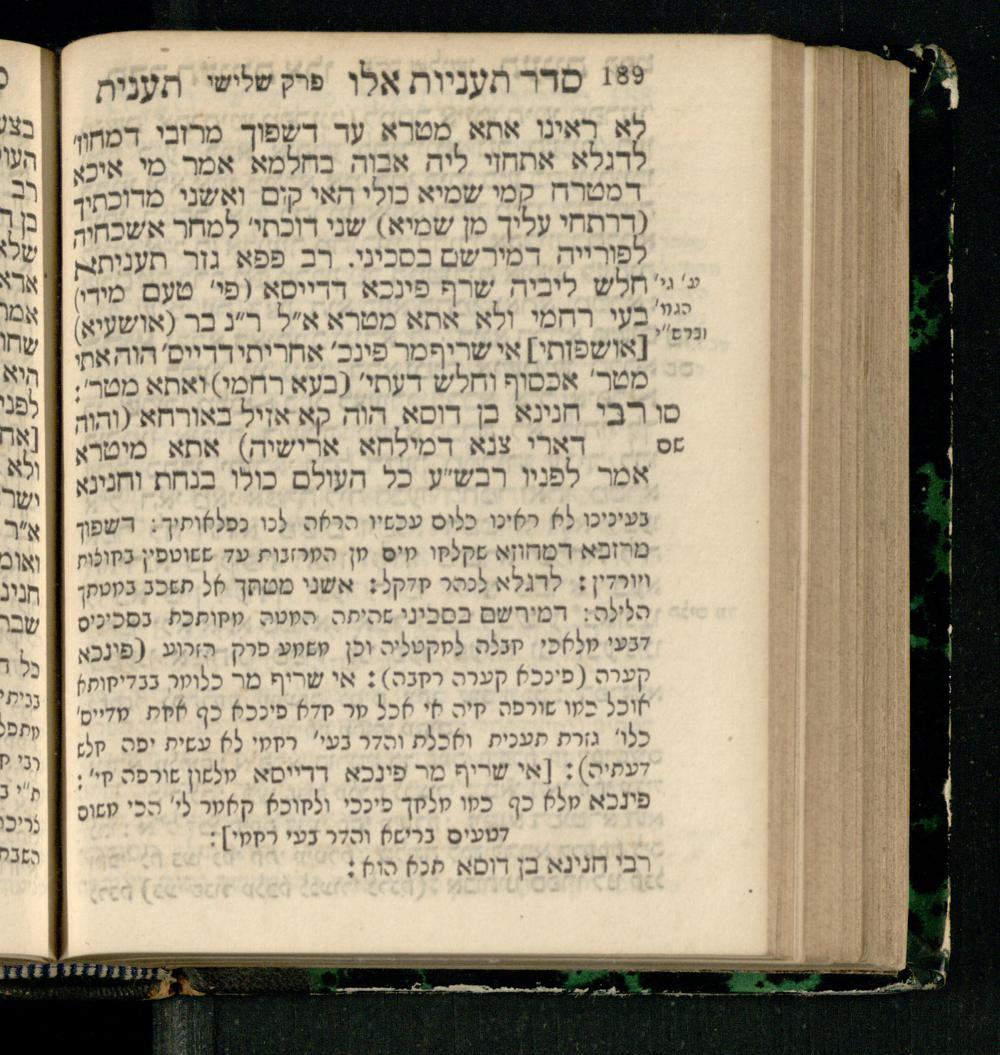 189 סדר תעניות אלו פרק שלישי תענית
לא ראינו אתא מטרא עד דשפוך מרזבי דמחוז'
לדגלא אתחזי ליה אבוה בחלמא אמר מי איכא
דמטרח קמי שמיא כולי האי קים ואשני מדוכתיך
(דרתחי עליך מן שמיא) שני דוכתי' למחר אשכחיה
לפורייה דמירשם בסכיני. רב פפא גזר תעניתא
חלש ליביה שרף פינכא דדייסא (פי' טעם מידי)
בעי רחמי ולא אתא מטרא א"ל ר"נ בר (אושעיא)
[אושפזתי] אי שריף מר פינכ' אחריתי דדייס' הוה אתי
מטר' אכסוף וחלש דעתי' (בעא רחמי) ואתא מטר':
סו רבי חנינא בן דוסא הוה קא אזיל באורחא (והוה
דארי צנא דמילחא ארישיה) אתא מיטרא
אמר לפניו רבש"ע כל העולם כולו בנחת וחנינא
ע' גי'
הגמ'
וברש"י
שם
בעינינו לא ראינו כלום עכשיו הראה לנו נפלאותיך: דשפוך
מרזבא דמחוזא שקלחו מים מן המרזבות עד ששוטפין בחולות
ויורדין: לדגלא לנהר חדקל: אשני מטתך אל תשכב במטתך
הלילה: דמירשם בסכיני שהיתה המטה מחותכת בסכינים
דבעי מלאכי חבלה למקטליה וכן משמע פרק הזרוע (פינכא
קערה (פינכא קערה רחבה): אי שריף מר כלומר בבדיחותא
אוכל כמו שורפה חיה אי אכל מר חדא פינכא כף אחת מדייס'
כלו' גזרת תענית ואכלת והדר בעי' רחמי לא עשית יפה חלש
דעתיה): [אי שריף מר פינכא דדייסא מלשון שורפה חי':
פינכא מלא כף כמו מלחך פינכי ולחוכא קאמר לי' הכי משום
דטעים ברישא והדר בעי רחמי]:
רבי חנינא בן דוסא תנא הוא: